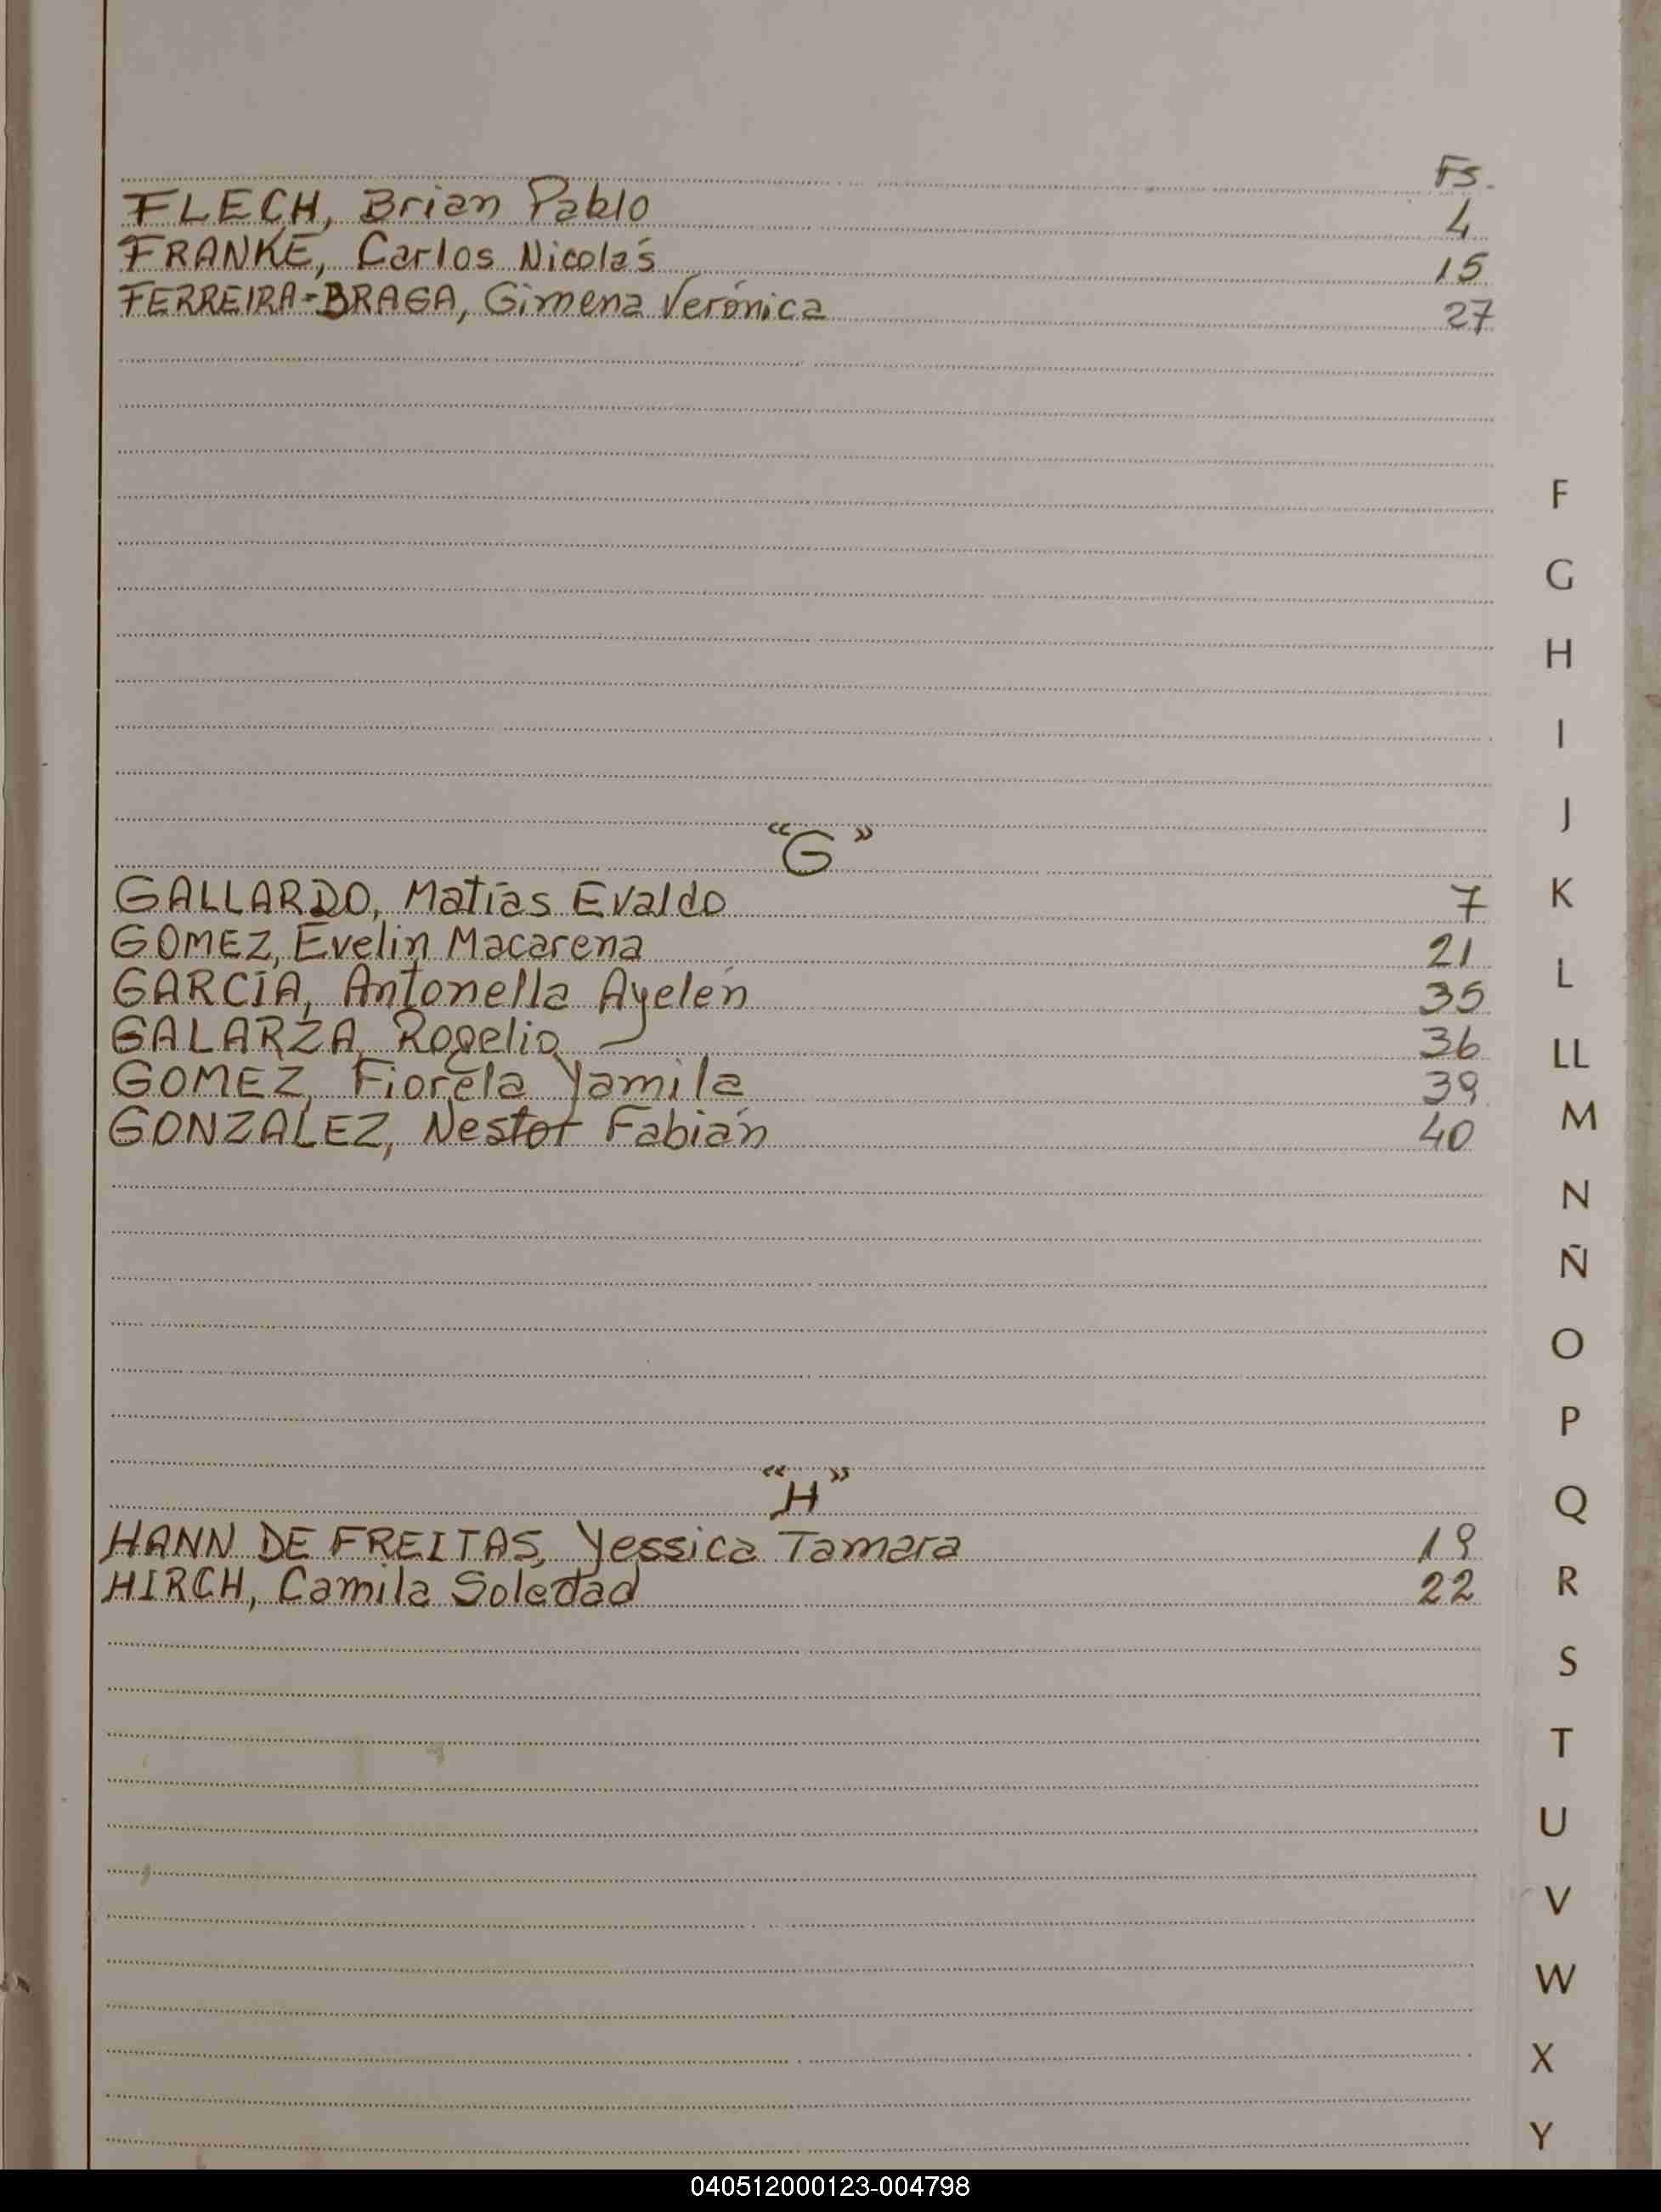 Fs.
FLECH, Brian Pablo 4
FRANKE, Carlos Nicolás 15
FERREIRA-BRAGA, Gimena Verónica 27
"G"
GALLARDO, Matías Evaldo 7
GOMEZ, Evelin Macarena 21
GARCÍA, Antonella Ayelén 35
GALARZA, Rogelio 36
GOMEZ, Fiorela Yamila 39
GONZALEZ, Nestor Fabián 40
"H"
HANN DE FREITAS, Yessica Tamara 19
HIRCH, Camila Soledad 22
F
G
H
I
J
K
L
LL
M
N
Ñ
O
P
Q
R
S
T
U
V
W
X
Y
040512000123-004798